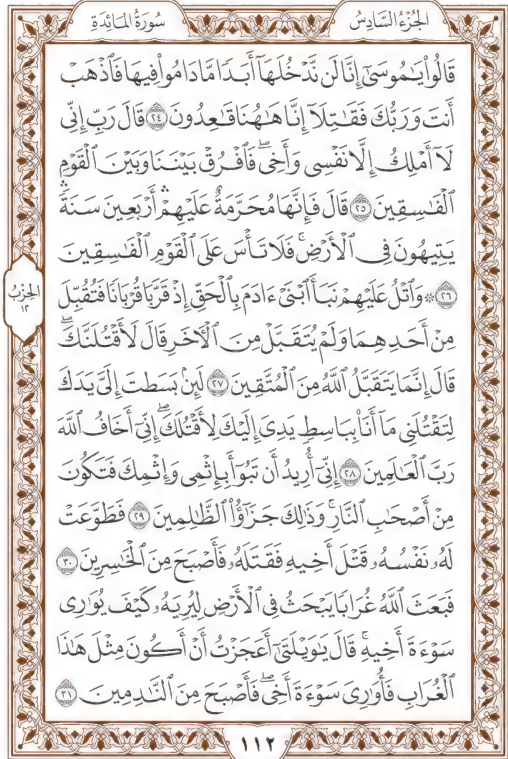 سُورَةُ المَائِدَةِ
الجُزْءُ السَّادِسُ
قَالُوا۟ يَـٰمُوسَىٰٓ إِنَّا لَن نَّدْخُلَهَآ أَبَدًا مَّا دَامُوا۟ فِيهَا فَٱذْهَبْ
أَنتَ وَرَبُّكَ فَقَـٰتِلَآ إِنَّا هَـٰهُنَا قَـٰعِدُونَ ٢٤ قَالَ رَبِّ إِنِّى
لَآ أَمْلِكُ إِلَّا نَفْسِى وَأَخِى ۖ فَٱفْرُقْ بَيْنَنَا وَبَيْنَ ٱلْقَوْمِ
ٱلْفَـٰسِقِينَ ٢٥ قَالَ فَإِنَّهَا مُحَرَّمَةٌ عَلَيْهِمْ ۛ أَرْبَعِينَ سَنَةً ۛ
يَتِيهُونَ فِى ٱلْأَرْضِ ۚ فَلَا تَأْسَ عَلَى ٱلْقَوْمِ ٱلْفَـٰسِقِينَ
٢٦ ۞ وَٱتْلُ عَلَيْهِمْ نَبَأَ ٱبْنَىْ ءَادَمَ بِٱلْحَقِّ إِذْ قَرَّبَا قُرْبَانًا فَتُقُبِّلَ
مِنْ أَحَدِهِمَا وَلَمْ يُتَقَبَّلْ مِنَ ٱلْـَٔاخَرِ قَالَ لَأَقْتُلَنَّكَ ۖ
قَالَ إِنَّمَا يَتَقَبَّلُ ٱللَّهُ مِنَ ٱلْمُتَّقِينَ ٢٧ لَئِنۢ بَسَطتَ إِلَىَّ يَدَكَ
لِتَقْتُلَنِى مَآ أَنَا۠ بِبَاسِطٍ يَدِىَ إِلَيْكَ لِأَقْتُلَكَ ۖ إِنِّىٓ أَخَافُ ٱللَّهَ
رَبَّ ٱلْعَـٰلَمِينَ ٢٨ إِنِّىٓ أُرِيدُ أَن تَبُوٓأَ بِإِثْمِى وَإِثْمِكَ فَتَكُونَ
مِنْ أَصْحَـٰبِ ٱلنَّارِ ۚ وَذَٰلِكَ جَزَٰٓؤُا۟ ٱلظَّـٰلِمِينَ ٢٩ فَطَوَّعَتْ
لَهُۥ نَفْسُهُۥ قَتْلَ أَخِيهِ فَقَتَلَهُۥ فَأَصْبَحَ مِنَ ٱلْخَـٰسِرِينَ ٣٠
فَبَعَثَ ٱللَّهُ غُرَابًا يَبْحَثُ فِى ٱلْأَرْضِ لِيُرِيَهُۥ كَيْفَ يُوَٰرِى
سَوْءَةَ أَخِيهِ ۚ قَالَ يَـٰوَيْلَتَىٰٓ أَعَجَزْتُ أَنْ أَكُونَ مِثْلَ هَـٰذَا
ٱلْغُرَابِ فَأُوَٰرِىَ سَوْءَةَ أَخِى ۖ فَأَصْبَحَ مِنَ ٱلنَّـٰدِمِينَ ٣١
الحِزْبُ
١٢
١١٢